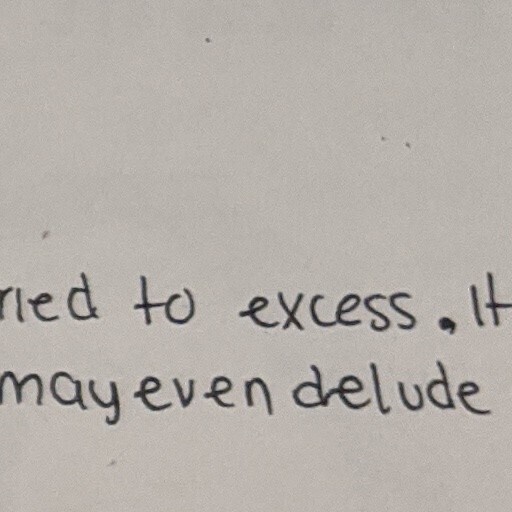 ried to excess. It
may even delude